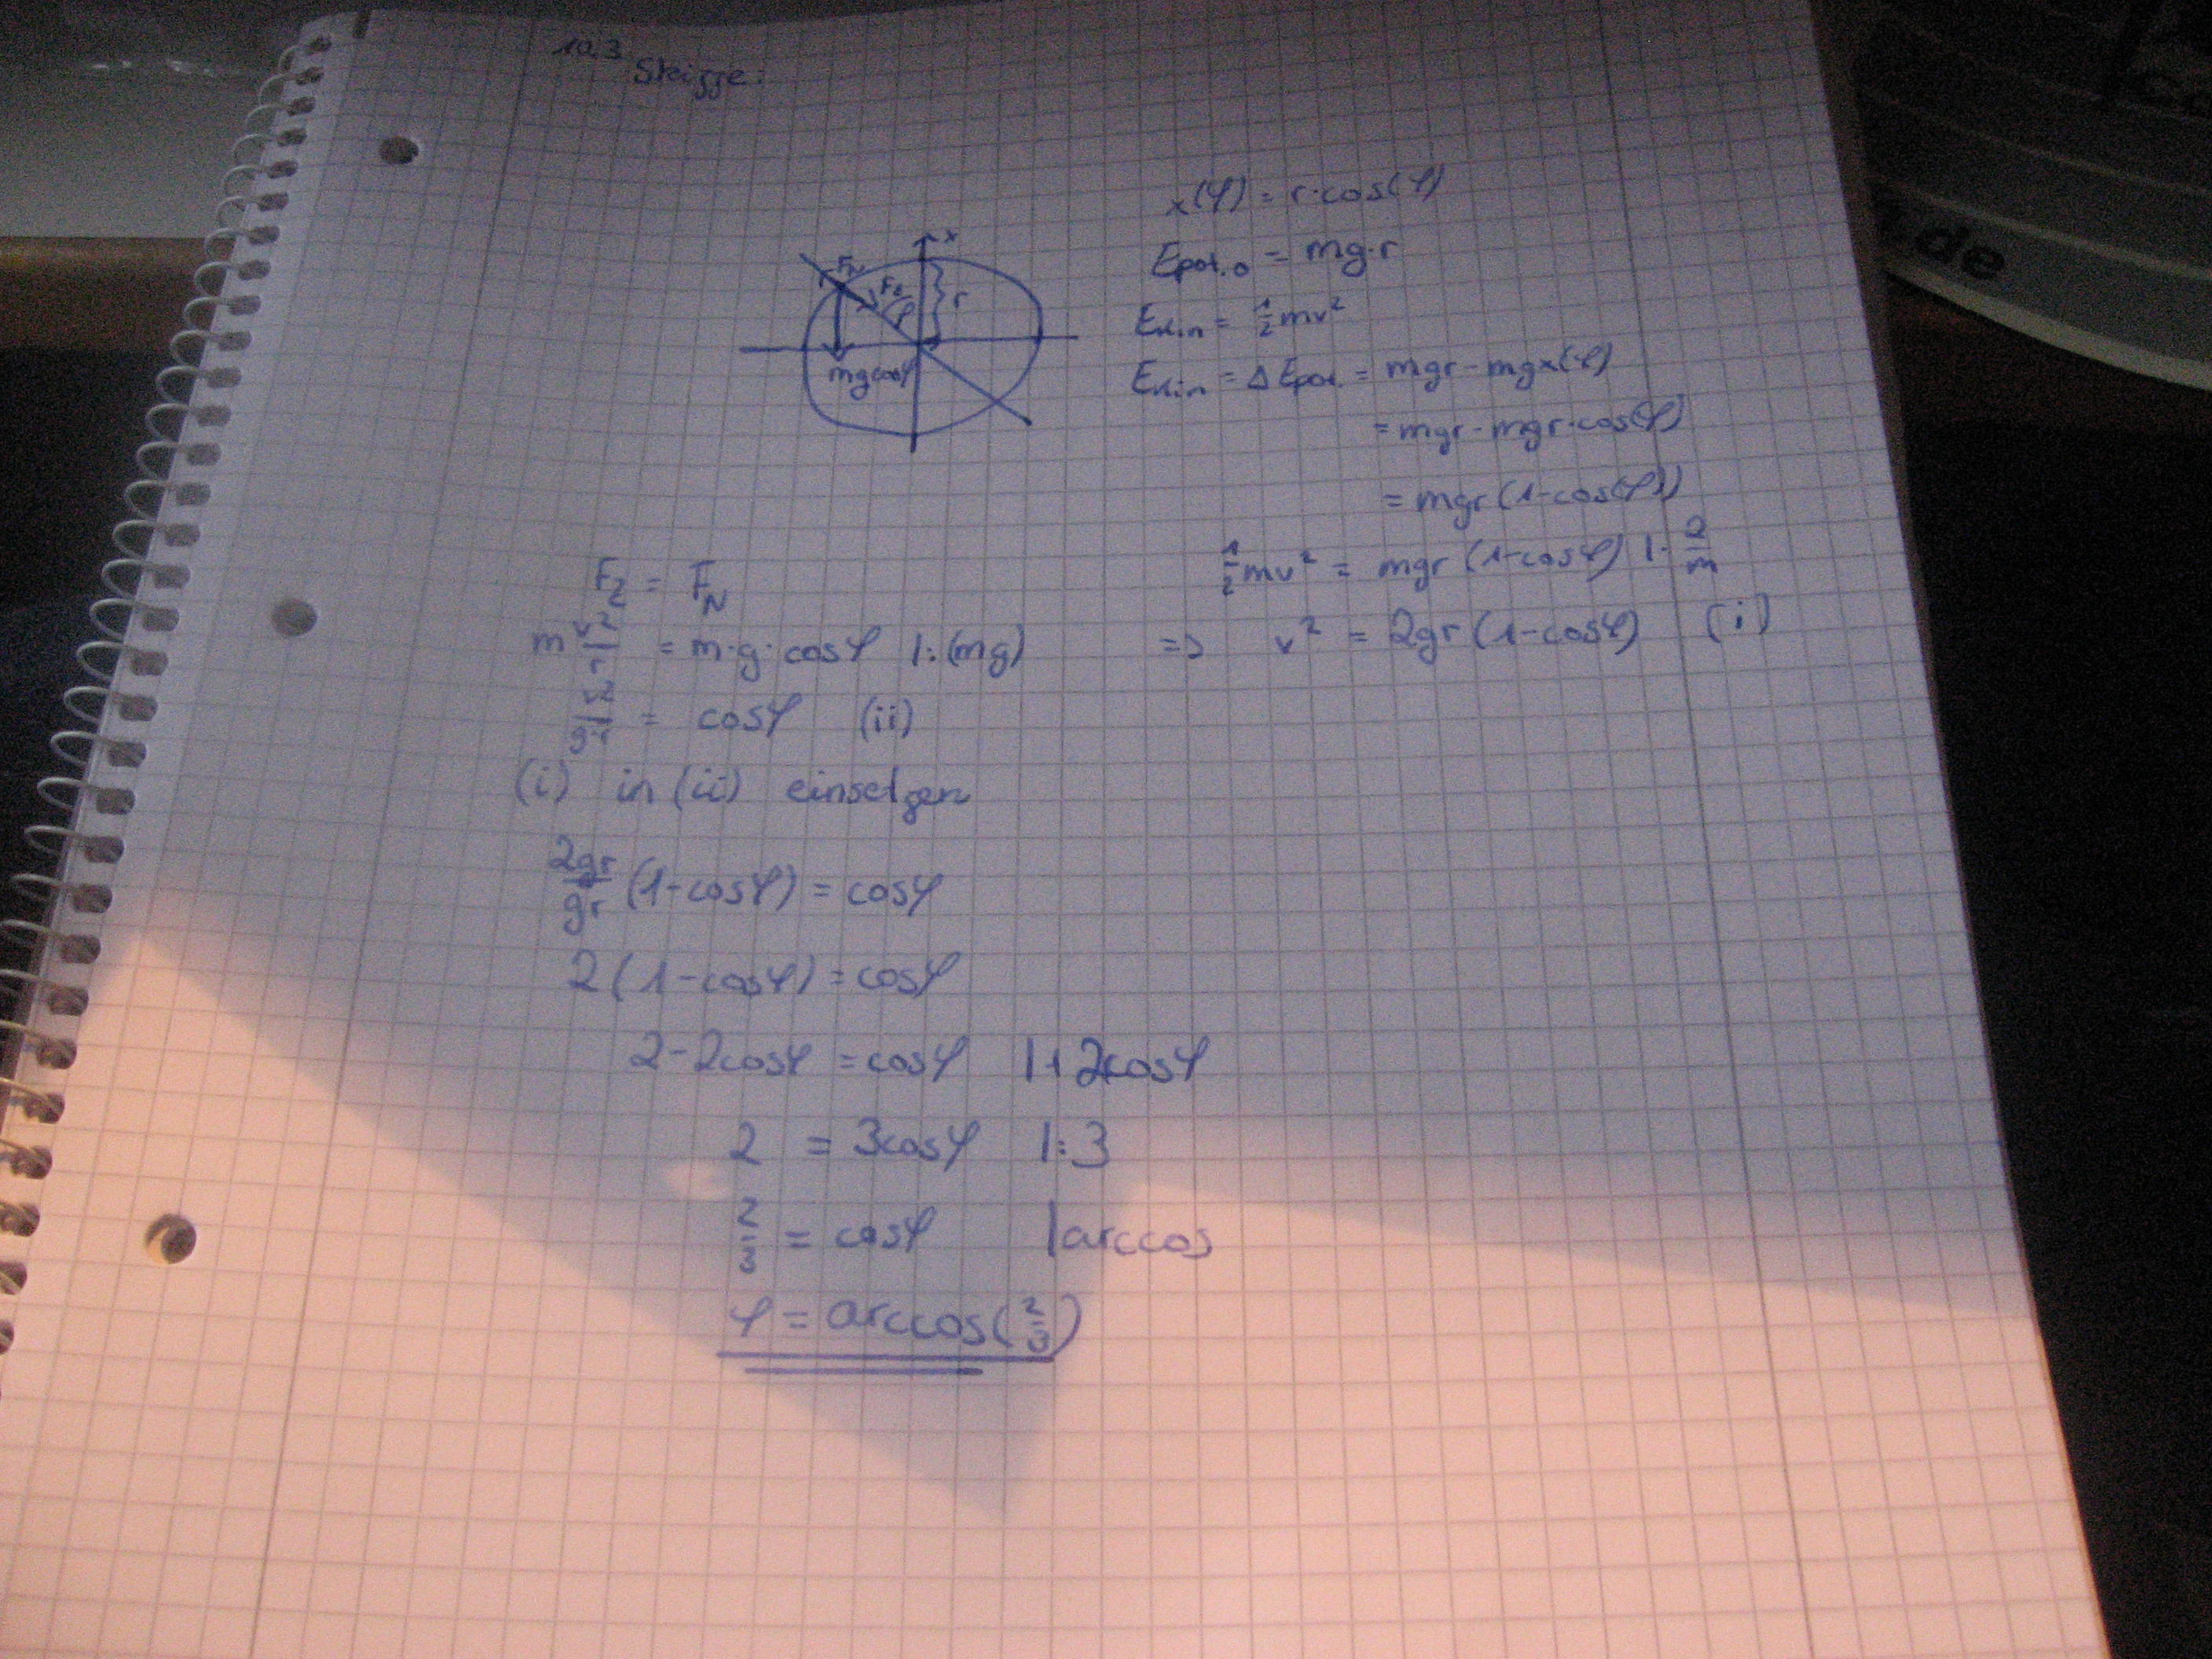 10.3 Skizze:
x
F_N
F_Z
φ
r
mg cosφ
x(φ) = r·cos(φ)
E_pot.0 = mg·r
E_kin = 1/2 mv²
E_kin = ΔE_pot. = mgr - mgx(φ)
= mgr - mgr·cos(φ)
= mgr(1-cos(φ))
1/2 mv² = mgr (1-cosφ) |· 2/m
=> v² = 2gr(1-cosφ) (i)
F_Z = F_N
m v²/r = m·g·cosφ |:(mg)
v²/(g·r) = cosφ (ii)
(i) in (ii) einsetzen
2gr/gr (1-cosφ) = cosφ
2(1-cosφ) = cosφ
2-2cosφ = cosφ |+2cosφ
2 = 3cosφ |:3
2/3 = cosφ |arccos
φ = arccos(2/3)
.de